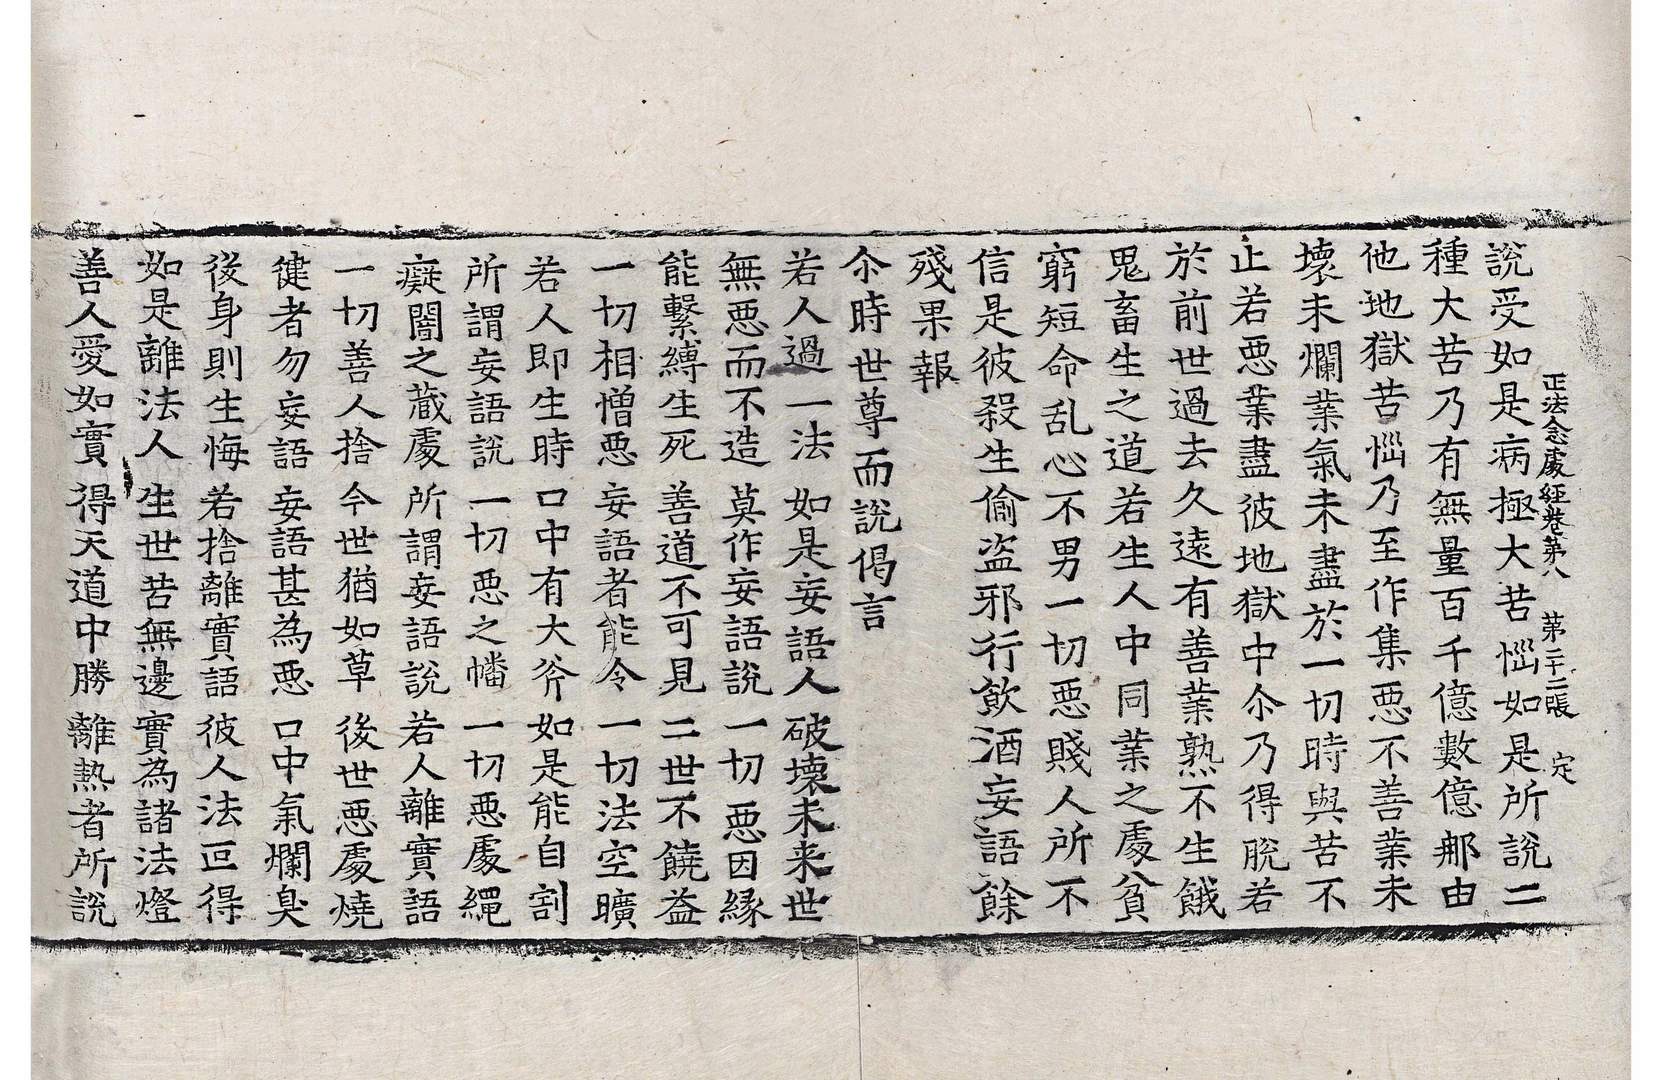 正法念處經卷第八　第二十二張　定
說受如是病極大苦惱如是所說二
種大苦乃有無量百千億數億那由
他地獄苦惱乃至作集惡不善業未
壞未爛業氣未盡於一切時與苦不
止若惡業盡彼地獄中尒乃得脫若
於前世過去久遠有善業熟不生餓
鬼畜生之道若生人中同業之處貧
窮短命乱心不男一切惡賤人所不
信是彼殺生偷盜邪行飲酒妄語餘
殘果報
尒時世尊而說偈言
若人過一法　如是妄語人　破壞未来世
無惡而不造　莫作妄語說　一切惡因緣
能繫縛生死　善道不可見　二世不饒益
一切相憎惡　妄語者能令　一切法空曠
若人即生時　口中有大斧　如是能自割
所謂妄語說　一切惡之幡　一切惡處繩
癡闇之藏處　所謂妄語說　若人離實語
一切善人捨　今世猶如草　後世惡處燒
健者勿妄語　妄語甚為惡　口中氣爛臭
後身則生悔　若捨離實語　彼人法叵得
如是離法人　生世苦無邊　實為諸法燈
善人愛如實　得天道中勝　離熱者所說